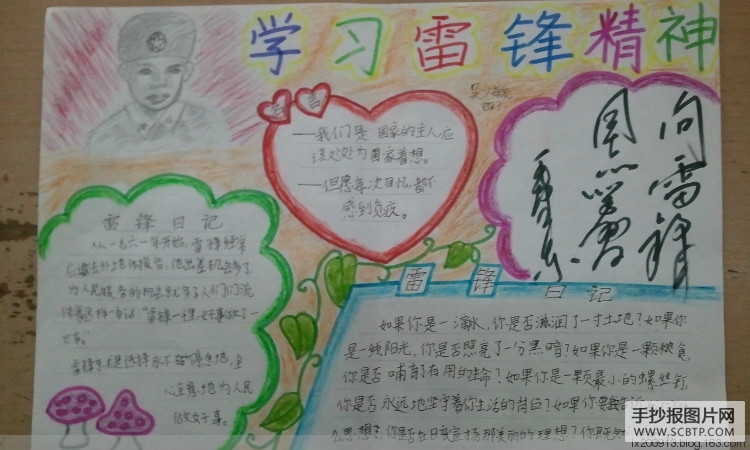 学习雷锋精神
——我们是国家的主人应
该处处为国家着想。
——但愿每次回忆,都不
感到负疚。
向雷锋
同志学习
毛泽东
雷锋日记
从一九六一年开始,雷锋经常
应邀去外地作报告,他出差机会多了,
为人民服务的机会就多了人们们流
传着这样一句话"雷锋一路好事做了一
火车。"
心意地为人民
做好事。
雷锋日记
如果你是一滴水,你是否滋润了一寸土地?如果你
是一线阳光,你是否照亮了一分黑暗?如果你是一颗粮食,
你是否哺育了有用的生命?如果你是一颗最小的螺丝钉
你是否永远地坚守着你生活的岗位?如果你要告诉
么思想?你是否在日夜宣扬那美丽的理想?你既然
手抄报图片网
WWW.SCBTP.COM
lx200913.blog.163.com